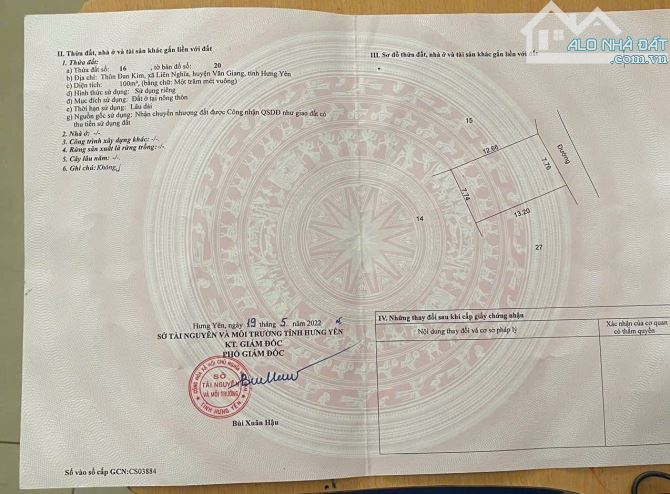 ALO NHÀ ĐẤT
.com.vn
II. Thửa đất, nhà ở và tài sản khác gắn liền với đất
1. Thửa đất:
a) Thửa đất số: 16 , tờ bản đồ số: 20
b) Địa chỉ: Thôn Đan Kim, xã Liên Nghĩa, huyện Văn Giang, tỉnh Hưng Yên
c) Diện tích: 100m², (bằng chữ: Một trăm mét vuông)
d) Hình thức sử dụng: Sử dụng riêng
đ) Mục đích sử dụng: Đất ở tại nông thôn
e) Thời hạn sử dụng: Lâu dài
g) Nguồn gốc sử dụng: Nhận chuyển nhượng đất được Công nhận QSDĐ như giao đất có
thu tiền sử dụng đất
2. Nhà ở: -/-
3. Công trình xây dựng khác: -/-.
4. Rừng sản xuất là rừng trồng: -/-.
5. Cây lâu năm: -/-.
6. Ghi chú: Không./
Hưng Yên, ngày 19 tháng 5 năm 2022
SỞ TÀI NGUYÊN VÀ MÔI TRƯỜNG TỈNH HƯNG YÊN
KT. GIÁM ĐỐC
PHÓ GIÁM ĐỐC
SỞ
TÀI NGUYÊN
VÀ MÔI TRƯỜNG
TỈNH HƯNG YÊN
Bùi Xuân Hậu
Số vào sổ cấp GCN:CS03884
III. Sơ đồ thửa đất, nhà ở và tài sản khác gắn liền với đất
15
12.66
7.76
Đường
7.74
13.20
14
27
IV. Những thay đổi sau khi cấp giấy chứng nhận
Nội dung thay đổi và cơ sở pháp lý
Xác nhận của cơ quan
có thẩm quyền